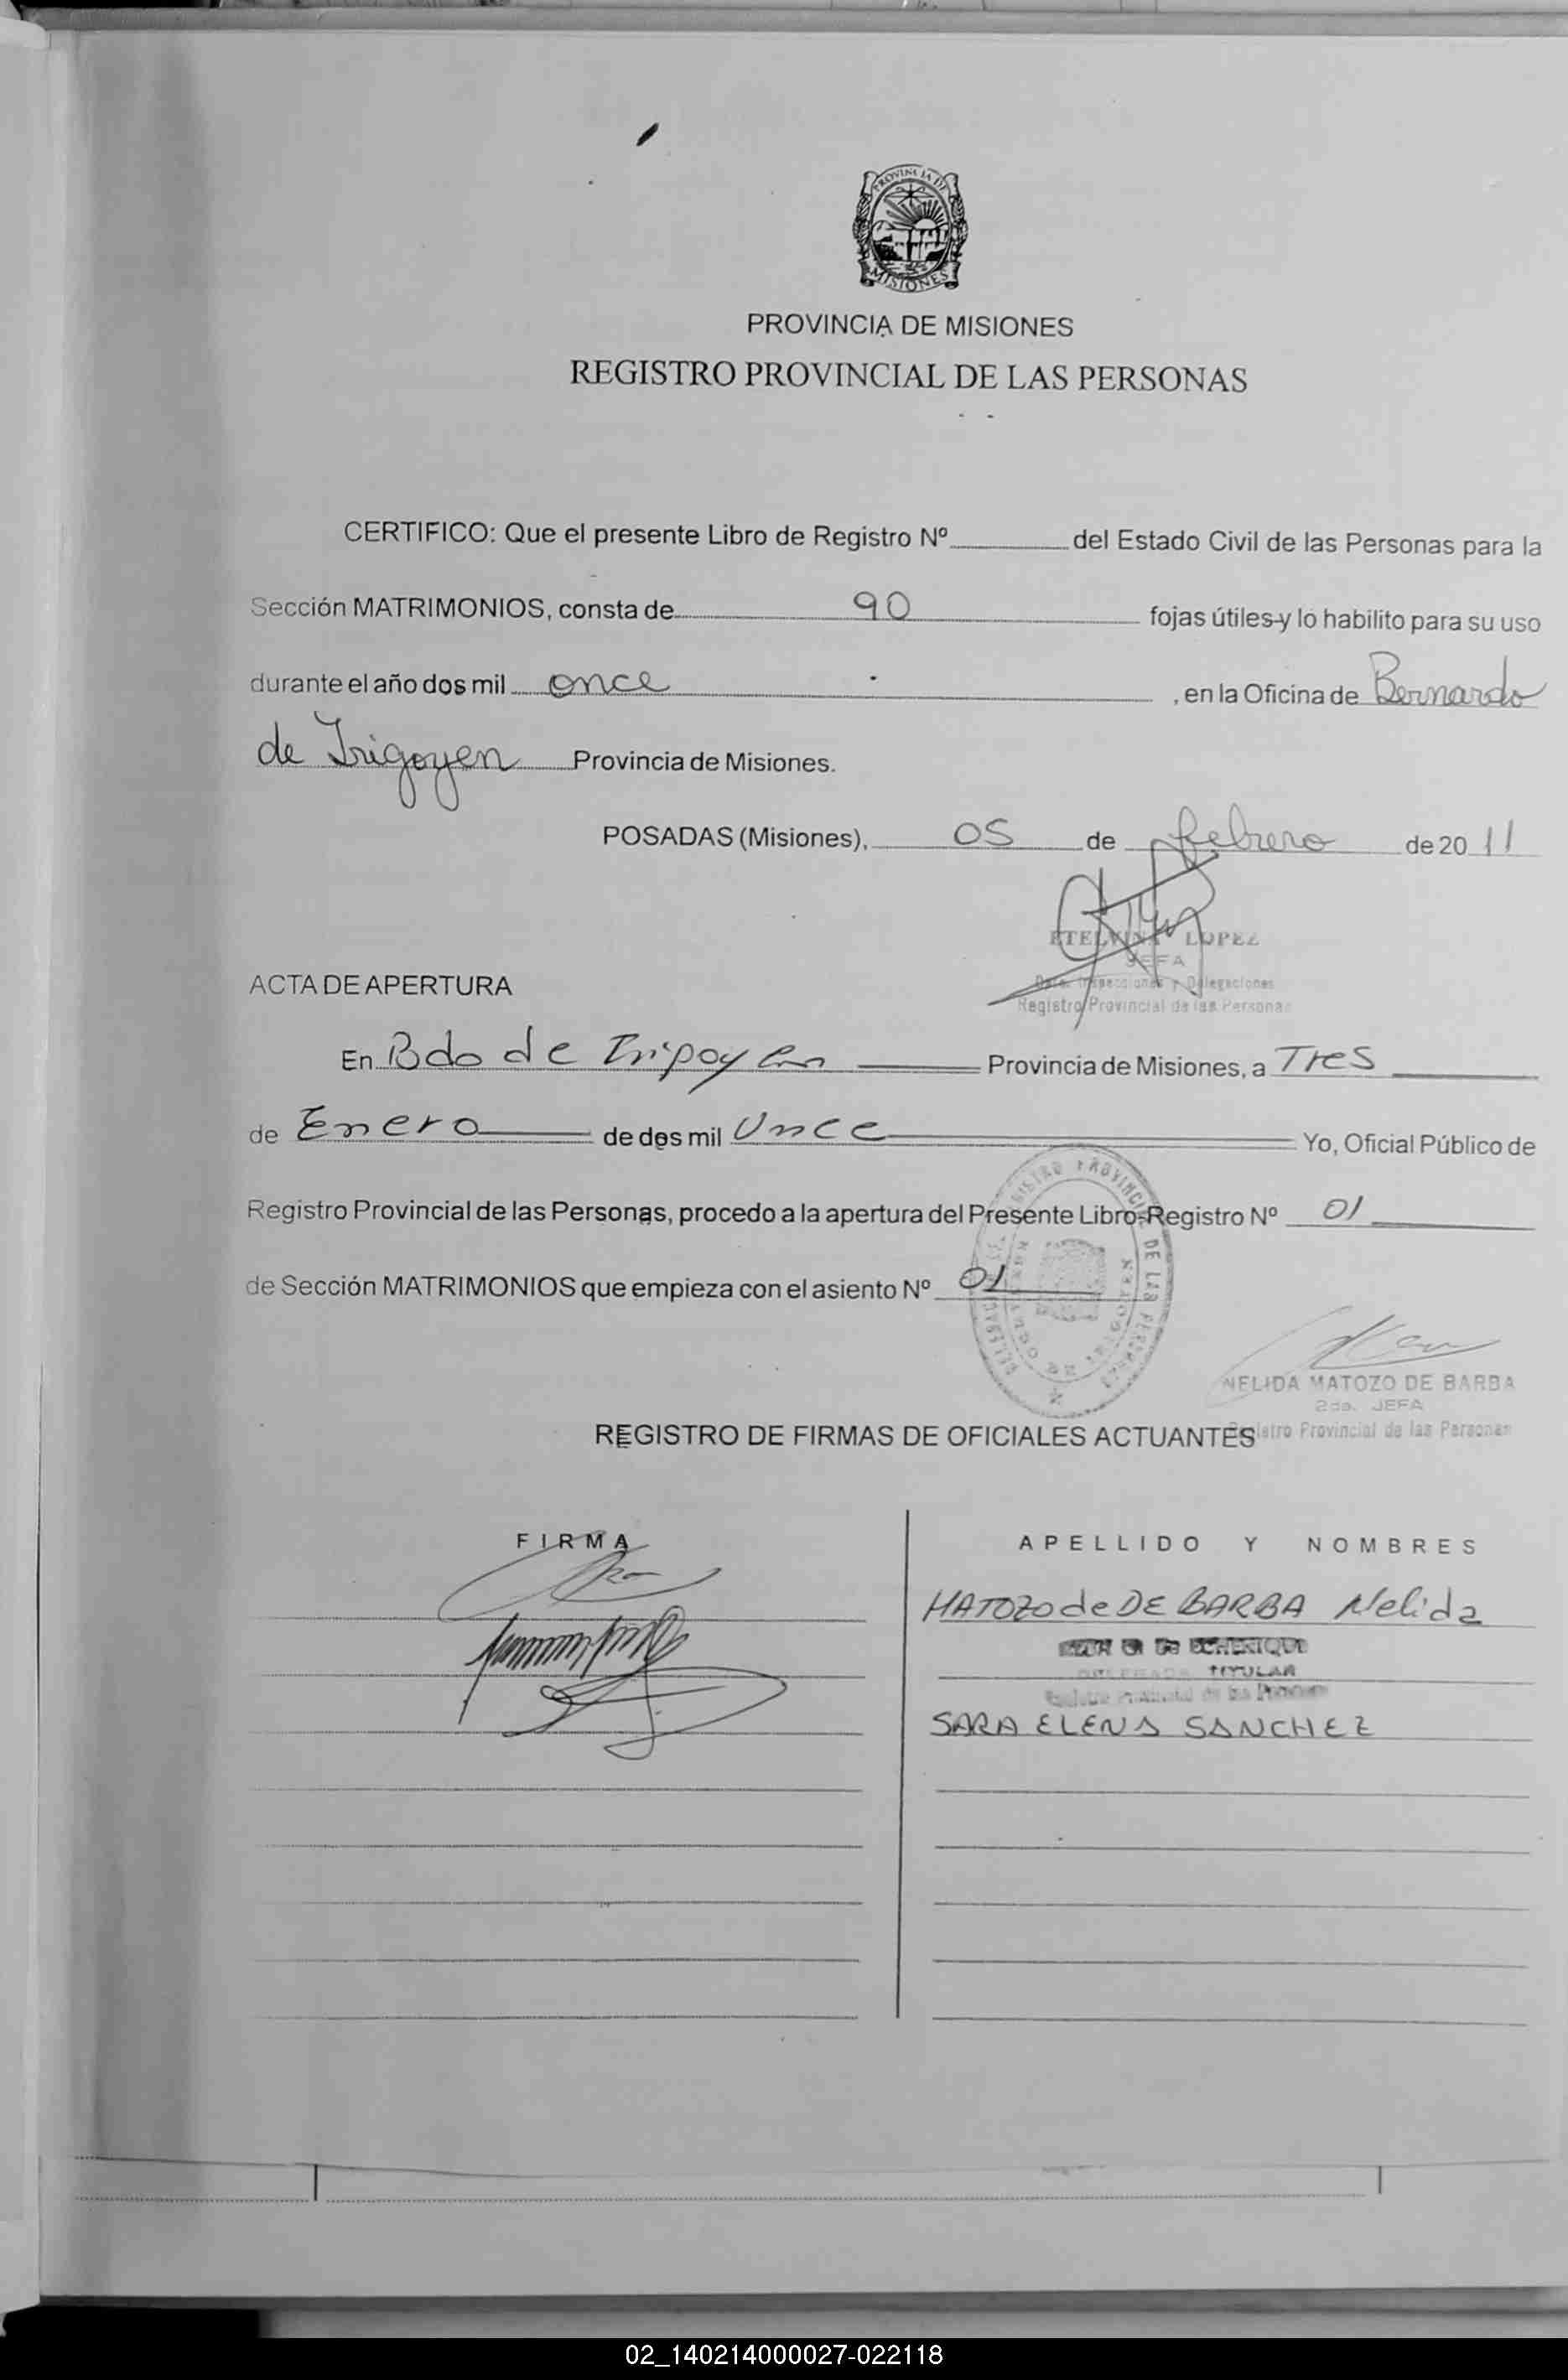 PROVINCIA DE
MISIONES
PROVINCIA DE MISIONES
REGISTRO PROVINCIAL DE LAS PERSONAS
CERTIFICO: Que el presente Libro de Registro Nº del Estado Civil de las Personas para la
Sección MATRIMONIOS, consta de 90 fojas útiles y lo habilito para su uso
durante el año dos mil once , en la Oficina de Bernardo
de Irigoyen Provincia de Misiones.
POSADAS (Misiones), 05 de febrero de 20 11
ETELVINA LOPEZ
JEFA
Dpto. Inspecciones y Delegaciones
Registro Provincial de las Personas
ACTA DE APERTURA
En Bdo de Irigoyen Provincia de Misiones, a Tres
de Enero de dos mil Once Yo, Oficial Público de
Registro Provincial de las Personas, procedo a la apertura del Presente Libro-Registro Nº 01
de Sección MATRIMONIOS que empieza con el asiento Nº 01
NELIDA MATOZO DE BARBA
2da. JEFA
Registro Provincial de las Personas
REGISTRO DE FIRMAS DE OFICIALES ACTUANTES
FIRMA APELLIDO Y NOMBRES
MATOZO de DE BARBA Nelida
DE ECHERIQUE
TITULAR
de las Personas
SARA ELENA SANCHEZ
02_140214000027-022118